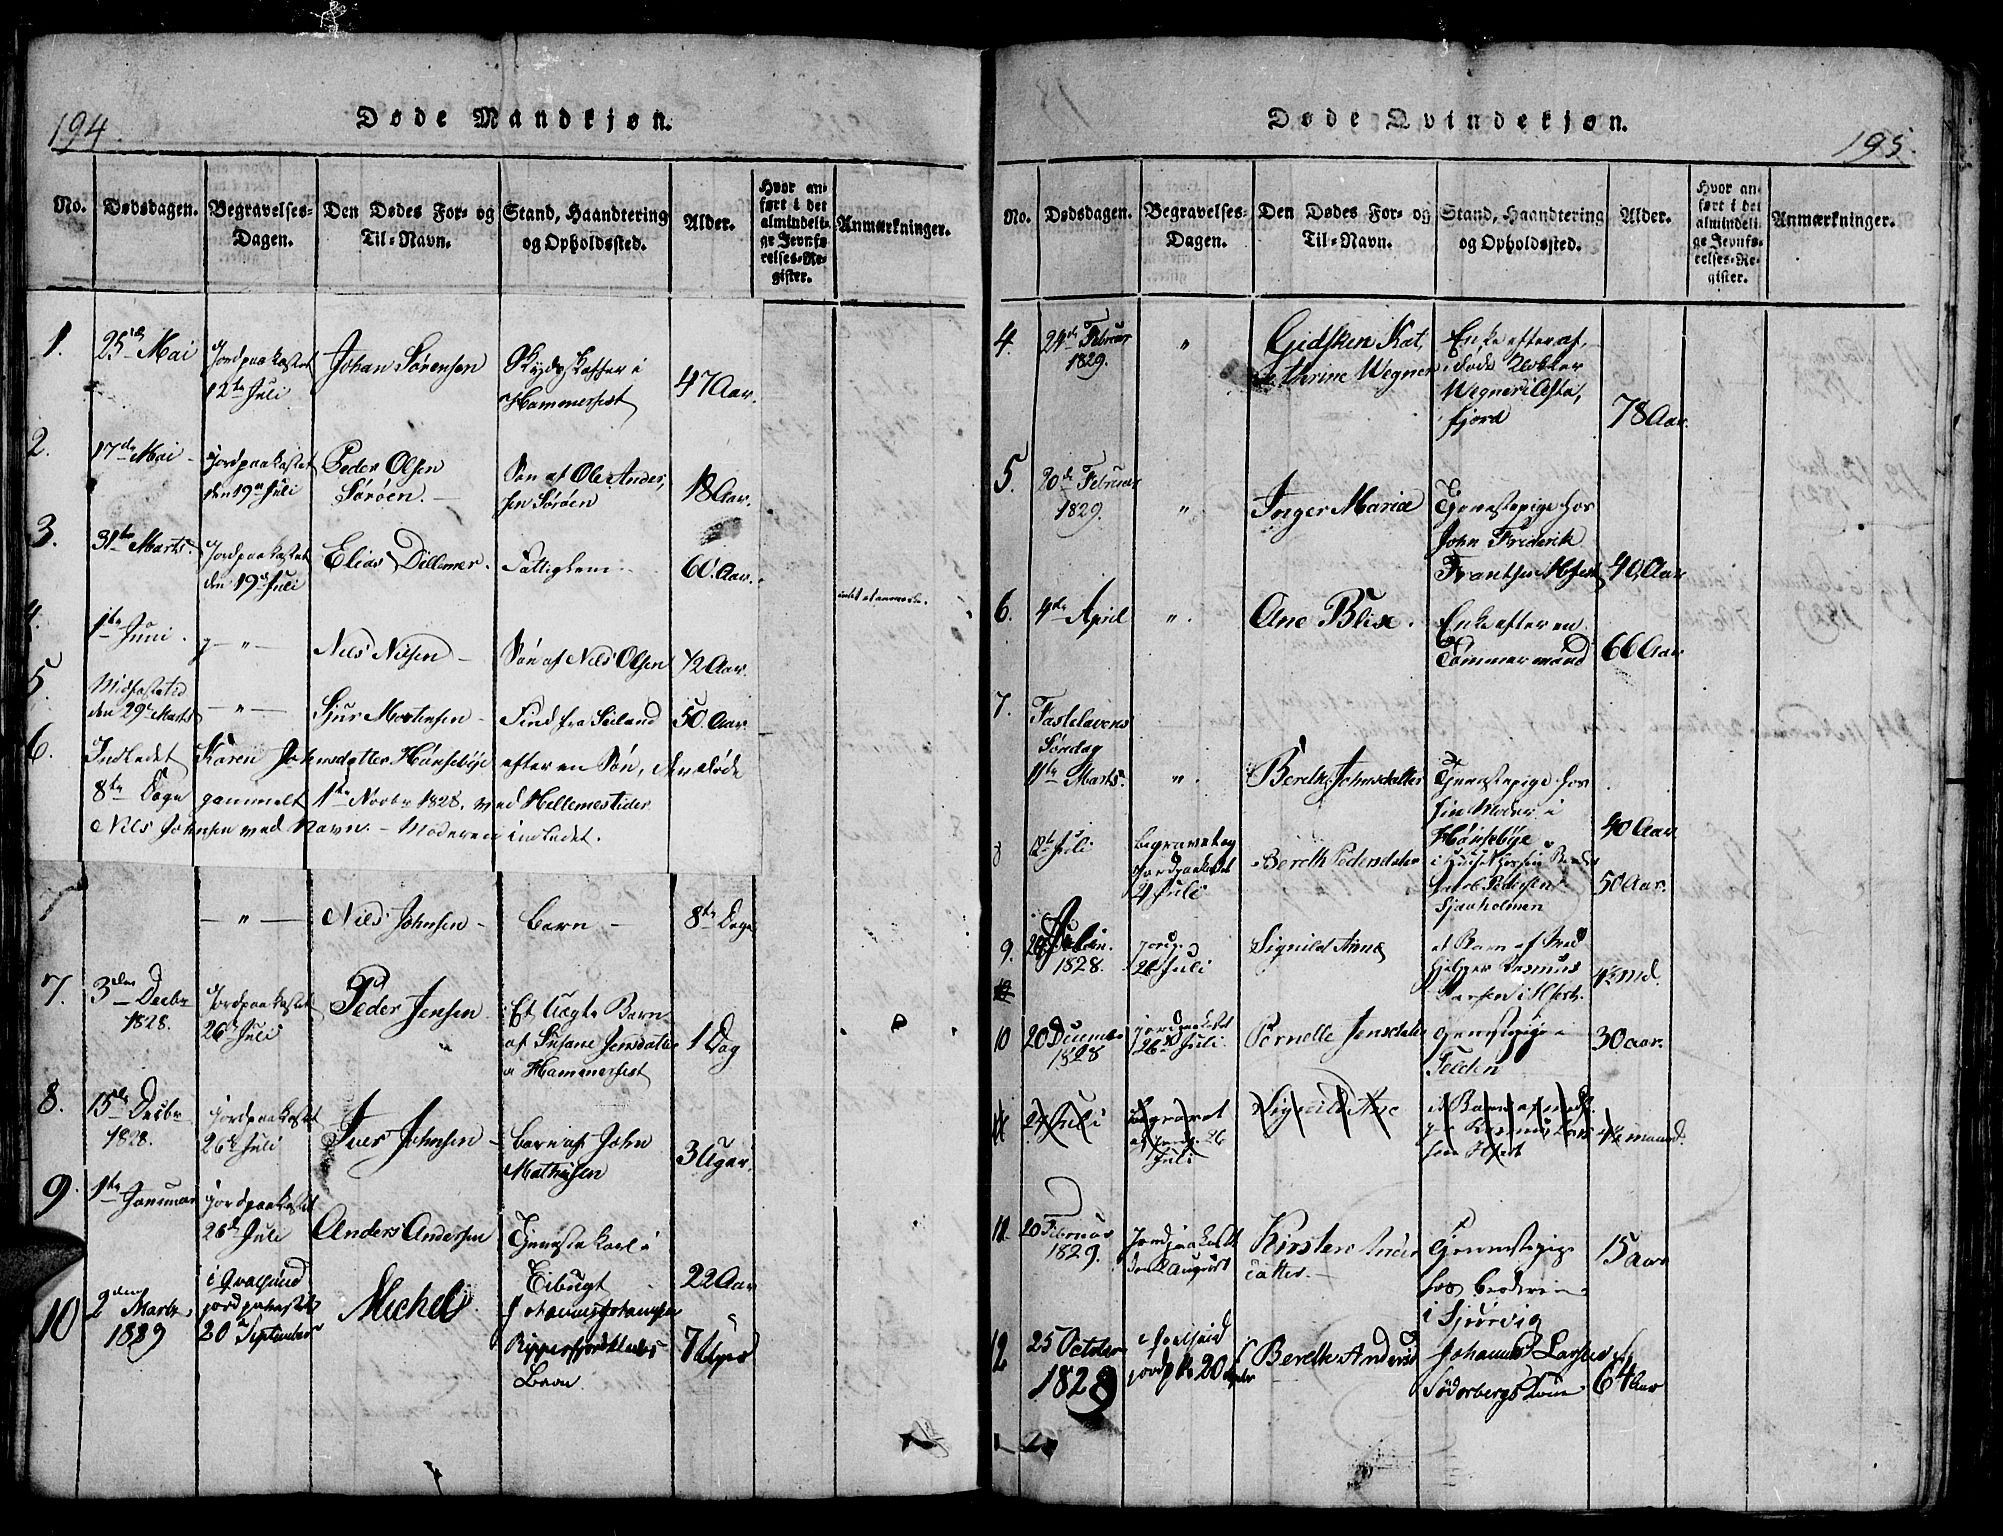 194.
Døde Mandkjøn.
No.
Dødsdagen.
Begravelses-
Dagen.
Den Dødes For- og
Til-Navn.
Stand, Haandtering
og Opholdssted.
Alder.
Hvor an-
ført i det
almindeli-
ge Jevnfø-
relses-Re-
gister.
Anmærkninger.
1.
25de Mai
Jordpaakastet
12te Juli
Johan Sørensen
Skydsskaffer i
Hammerfest
47 Aar.
2.
17de Mai -
Jordpaakastet
den 19de Juli
Peder Olsen
Sørøen. -
Søn af Ole Anders,
sen Sørøen
18 Aar.
3.
31te Marts.
Jordpaakastet
den 19de Juli
Elias Dillemer.
Fattiglem.
60 Aar.
4.
1te Juni.
- " -
Nils Nilsen -
Søn af Nils Olsen
1/2 Aar.
5.
Midfastetid
den 29de Marts
- " -
Sjur Mortensen -
Find fra Seiland
50 Aar.
6.
Indledet Karen Johnsdatter Hønsebye efter en Søn,
8te Dage gammelt 1te Novbr 1828, ved
Nils Johnsen ved Navn. - Moderen indledet.
7
- " -
Nils Johnsen -
Barn -
8te Dage
7.
3die Decbr
1828.
Jordpaakastet
26de Juli
Peder Jensen
Et Uægte Barn
af Susane Jensdatter
Hammerfest
1 Dag
8.
15de Decbr
1828.
Jordpaakastet
26de Juli
Iver Johnsen -
Barn af John
Mathisen
3 Uger.
9.
1te Januar
Jordpaakastet
26de Juli
Anders Andersen
Tjenestekarl i
Eibugt
22 Aar
10
2den Marts
1829
i Qvalsund
jordpakastet
20de September
Michel
Johannes Johannesen
Ripperfjord
Barn
7 Uger
195.
Døde Qvindekjøn.
No.
Dødsdagen.
Begravelses-
Dagen.
Den Dødes For- og
Til-Navn.
Stand, Haandtering
og Opholdssted.
Alder.
Hvor an-
ført i det
almindeli-
ge Jevnfø-
relses-Re-
gister.
Anmærkninger.
4.
24de Februar
1829.
"
Gidsken Kat,
thrine Wegner
Enke efter af,
døde Klokker
Wegner i Alta,
fjord
78 Aar.
5.
20de Februar
1829.
"
Inger Maria
Tjenestepige hos
John Frederik
Frantsen Hfest
40 Aar
6.
4de April
".
Ane Blix.
Enke efter en
Tømmermand
66 Aar
7.
Fastelavens
Søndag
11te Marts.
".
Bereth Johnsdatter
Tjenestepige hos
sin Moder i
Hønsebye
40 Aar
8
12te Juli
Begravet og
Jordpaakastet
24 Juli
Bereth Pedersdatter
Pedersen
Sjaaholmen
50 Aar.
9.
Juli
1828.
jordp.
26 Juli
Signild Anne
et Barn af Med
hjelper Rasmus
Larsen i Hfest.
4½ Md.
10
20 Decemb.
1828
jordpaakastet
26de Juli.
Pernelle Jensdatter
Tjenestepige i
Felden
30 aar.
11
24 Juli
Begravet
26
Juli
Signild Ane
et Barn af Med
Rasmus Lars
sen Hfest
4½ maaned.
11.
20 Februar
1829.
Jordpaakastet
den 2 August
Kirsten Anders
datter. -
Tjenestepige
hos Broderen
i Sjørvig
15 aar
12
25 October
1828
i Qvalsund
jordpk 20 Septbr
Bereth Andersd
Johannes Larsen
Söderbergs Kone
64 Aar